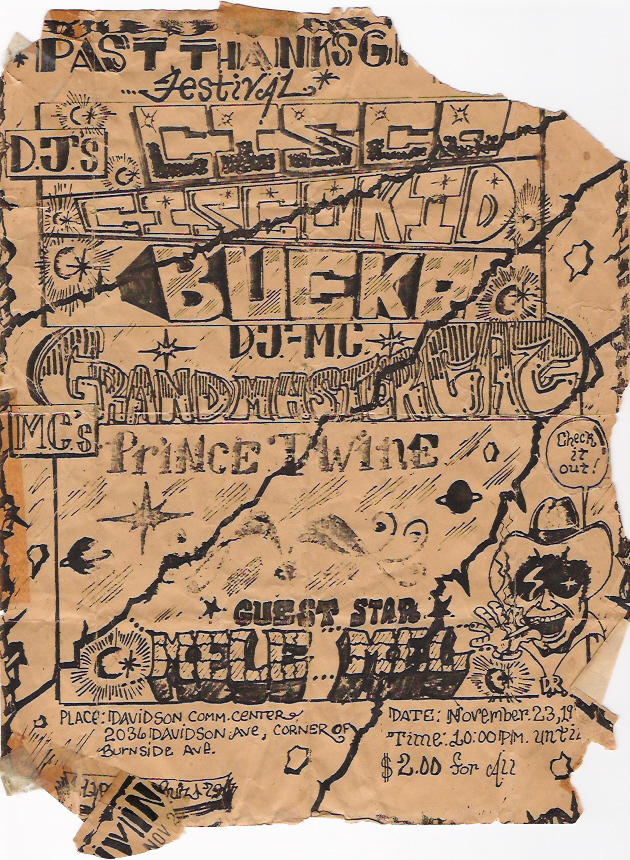 PAST THANKSGI
....Festival
D.J'S
CISCO
CISCO KID
DJ-MC
GRANDMASTER
MC's
PRINCE TWINE
Check
it
out!
GUEST STAR
MELE ... MEL
PLACE: DAVIDSON COMM. CENTER
2036 DAVIDSON AVE, CORNER OF
BURNSIDE AVE.
DATE: November. 23, 19
Time: 10:00 P.M. until
$2.00 for All
NOV